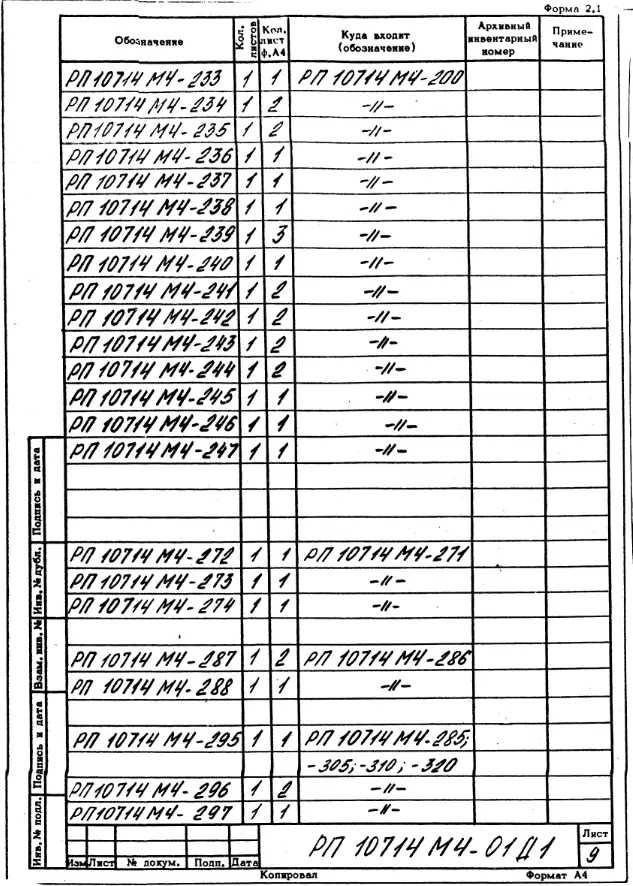 Форма 2.1
Обозначение | Кол. листов | Кол. лист ф.А4 | Куда входит (обозначение) | Архивный инвентарный номер | Приме-чание
РП 10714 М4-233 1 1 РП 10714 М4-200
РП 10714 М4-234 1 2 -//-
РП 10714 М4-235 1 2 -//-
РП 10714 М4-236 1 1 -//-
РП 10714 М4-237 1 1 -//-
РП 10714 М4-238 1 1 -//-
РП 10714 М4-239 1 3 -//-
РП 10714 М4-240 1 1 -//-
РП 10714 М4-241 1 2 -//-
РП 10714 М4-242 1 2 -//-
РП 10714 М4-243 1 2 -//-
РП 10714 М4-244 1 2 -//-
РП 10714 М4-245 1 1 -//-
РП 10714 М4-246 1 1 -//-
РП 10714 М4-247 1 1 -//-
РП 10714 М4-272 1 1 РП 10714 М4-271
РП 10714 М4-273 1 1 -//-
РП 10714 М4-274 1 1 -//-
РП 10714 М4-287 1 2 РП 10714 М4-286
РП 10714 М4-288 1 1 -//-
РП 10714 М4-295 1 1 РП 10714 М4-285;
-305; -310; -320
РП 10714 М4-296 1 2 -//-
РП 10714 М4-297 1 1 -//-
Подпись и дата
Инв. № дубл.
Взам. инв. №
Подпись и дата
Инв. № подл.
Изм Лист № докум. Подп. Дата
РП 10714 М4-01Д1
Лист
9
Копировал Формат А4